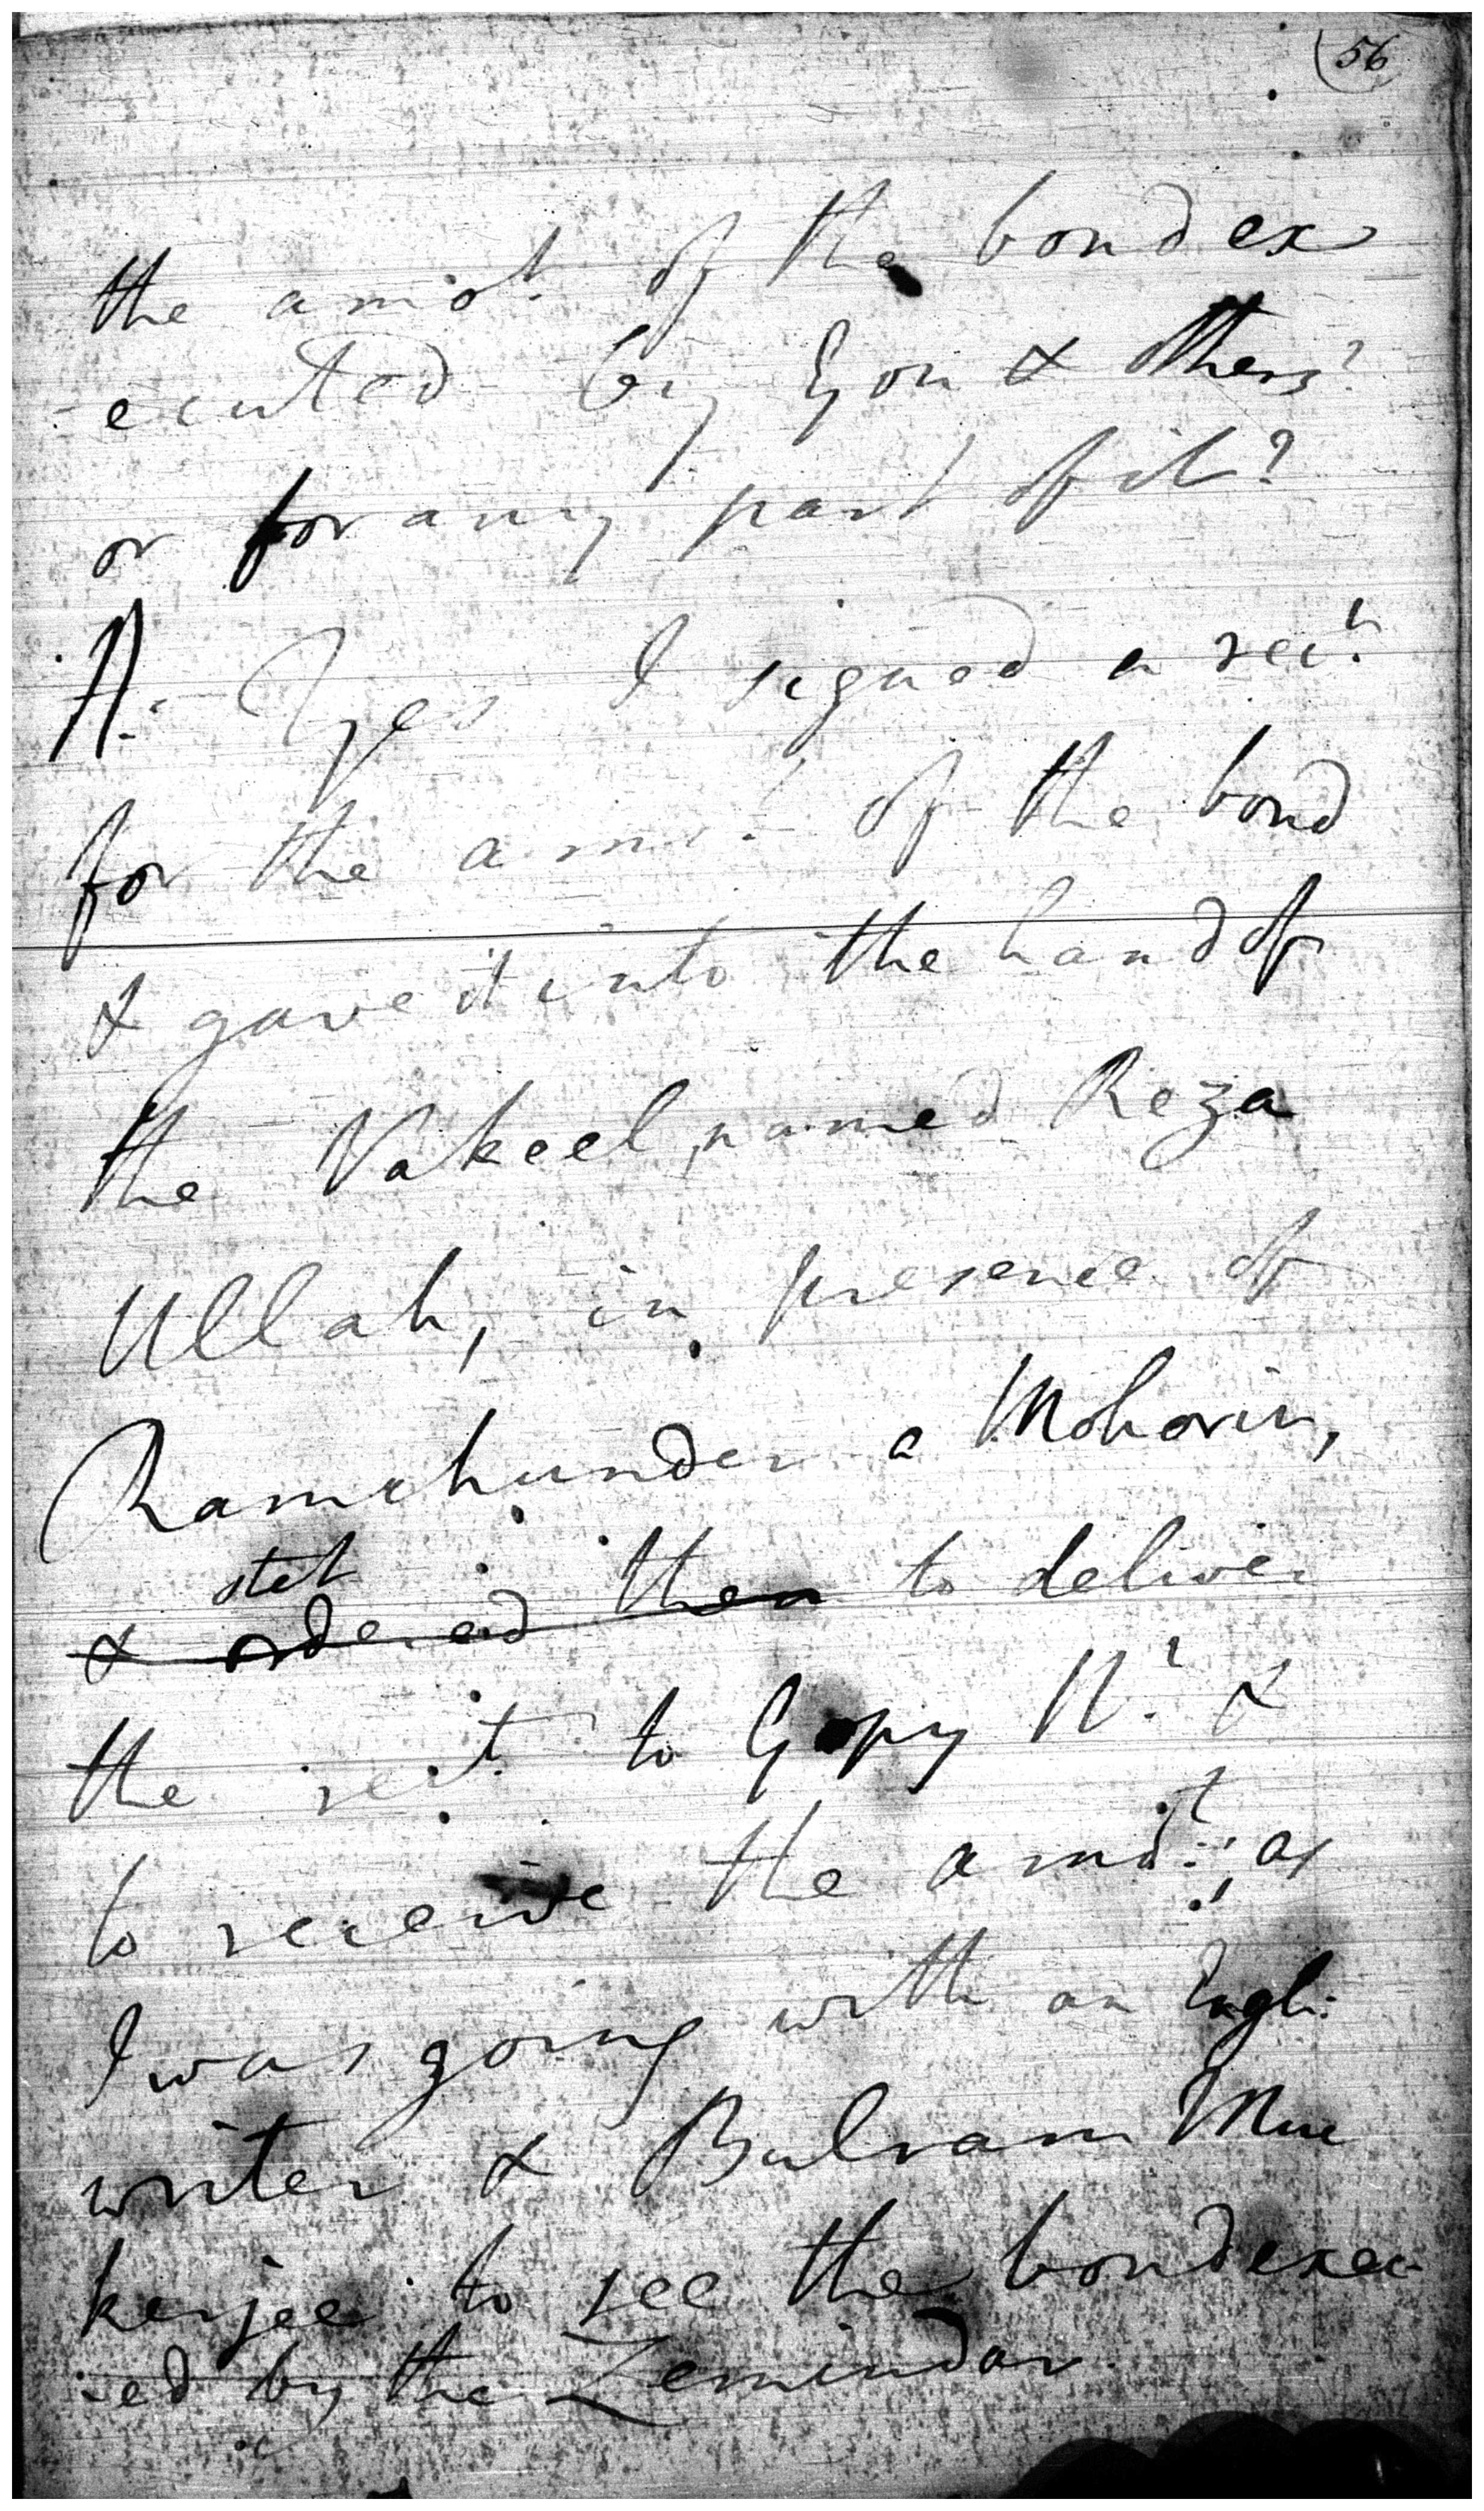 (56
the amot. of the bond ex
- ecuted by Gyou & others?
or for any part of it?
A. Yes I signed a rect.
for the amot. of the bond
& gave it into the hand of
the Vakeel, named Reza
Ullah, in presence of
Ramchunder a Mohorir,
stet
& ordered them to deliver
the rect. to Gopy Nt. &
to receive the amot.; as
I was going with an Engl:
writer & Bulram Muc
kerjee to see the bond exec
-ed by the Zemindar.